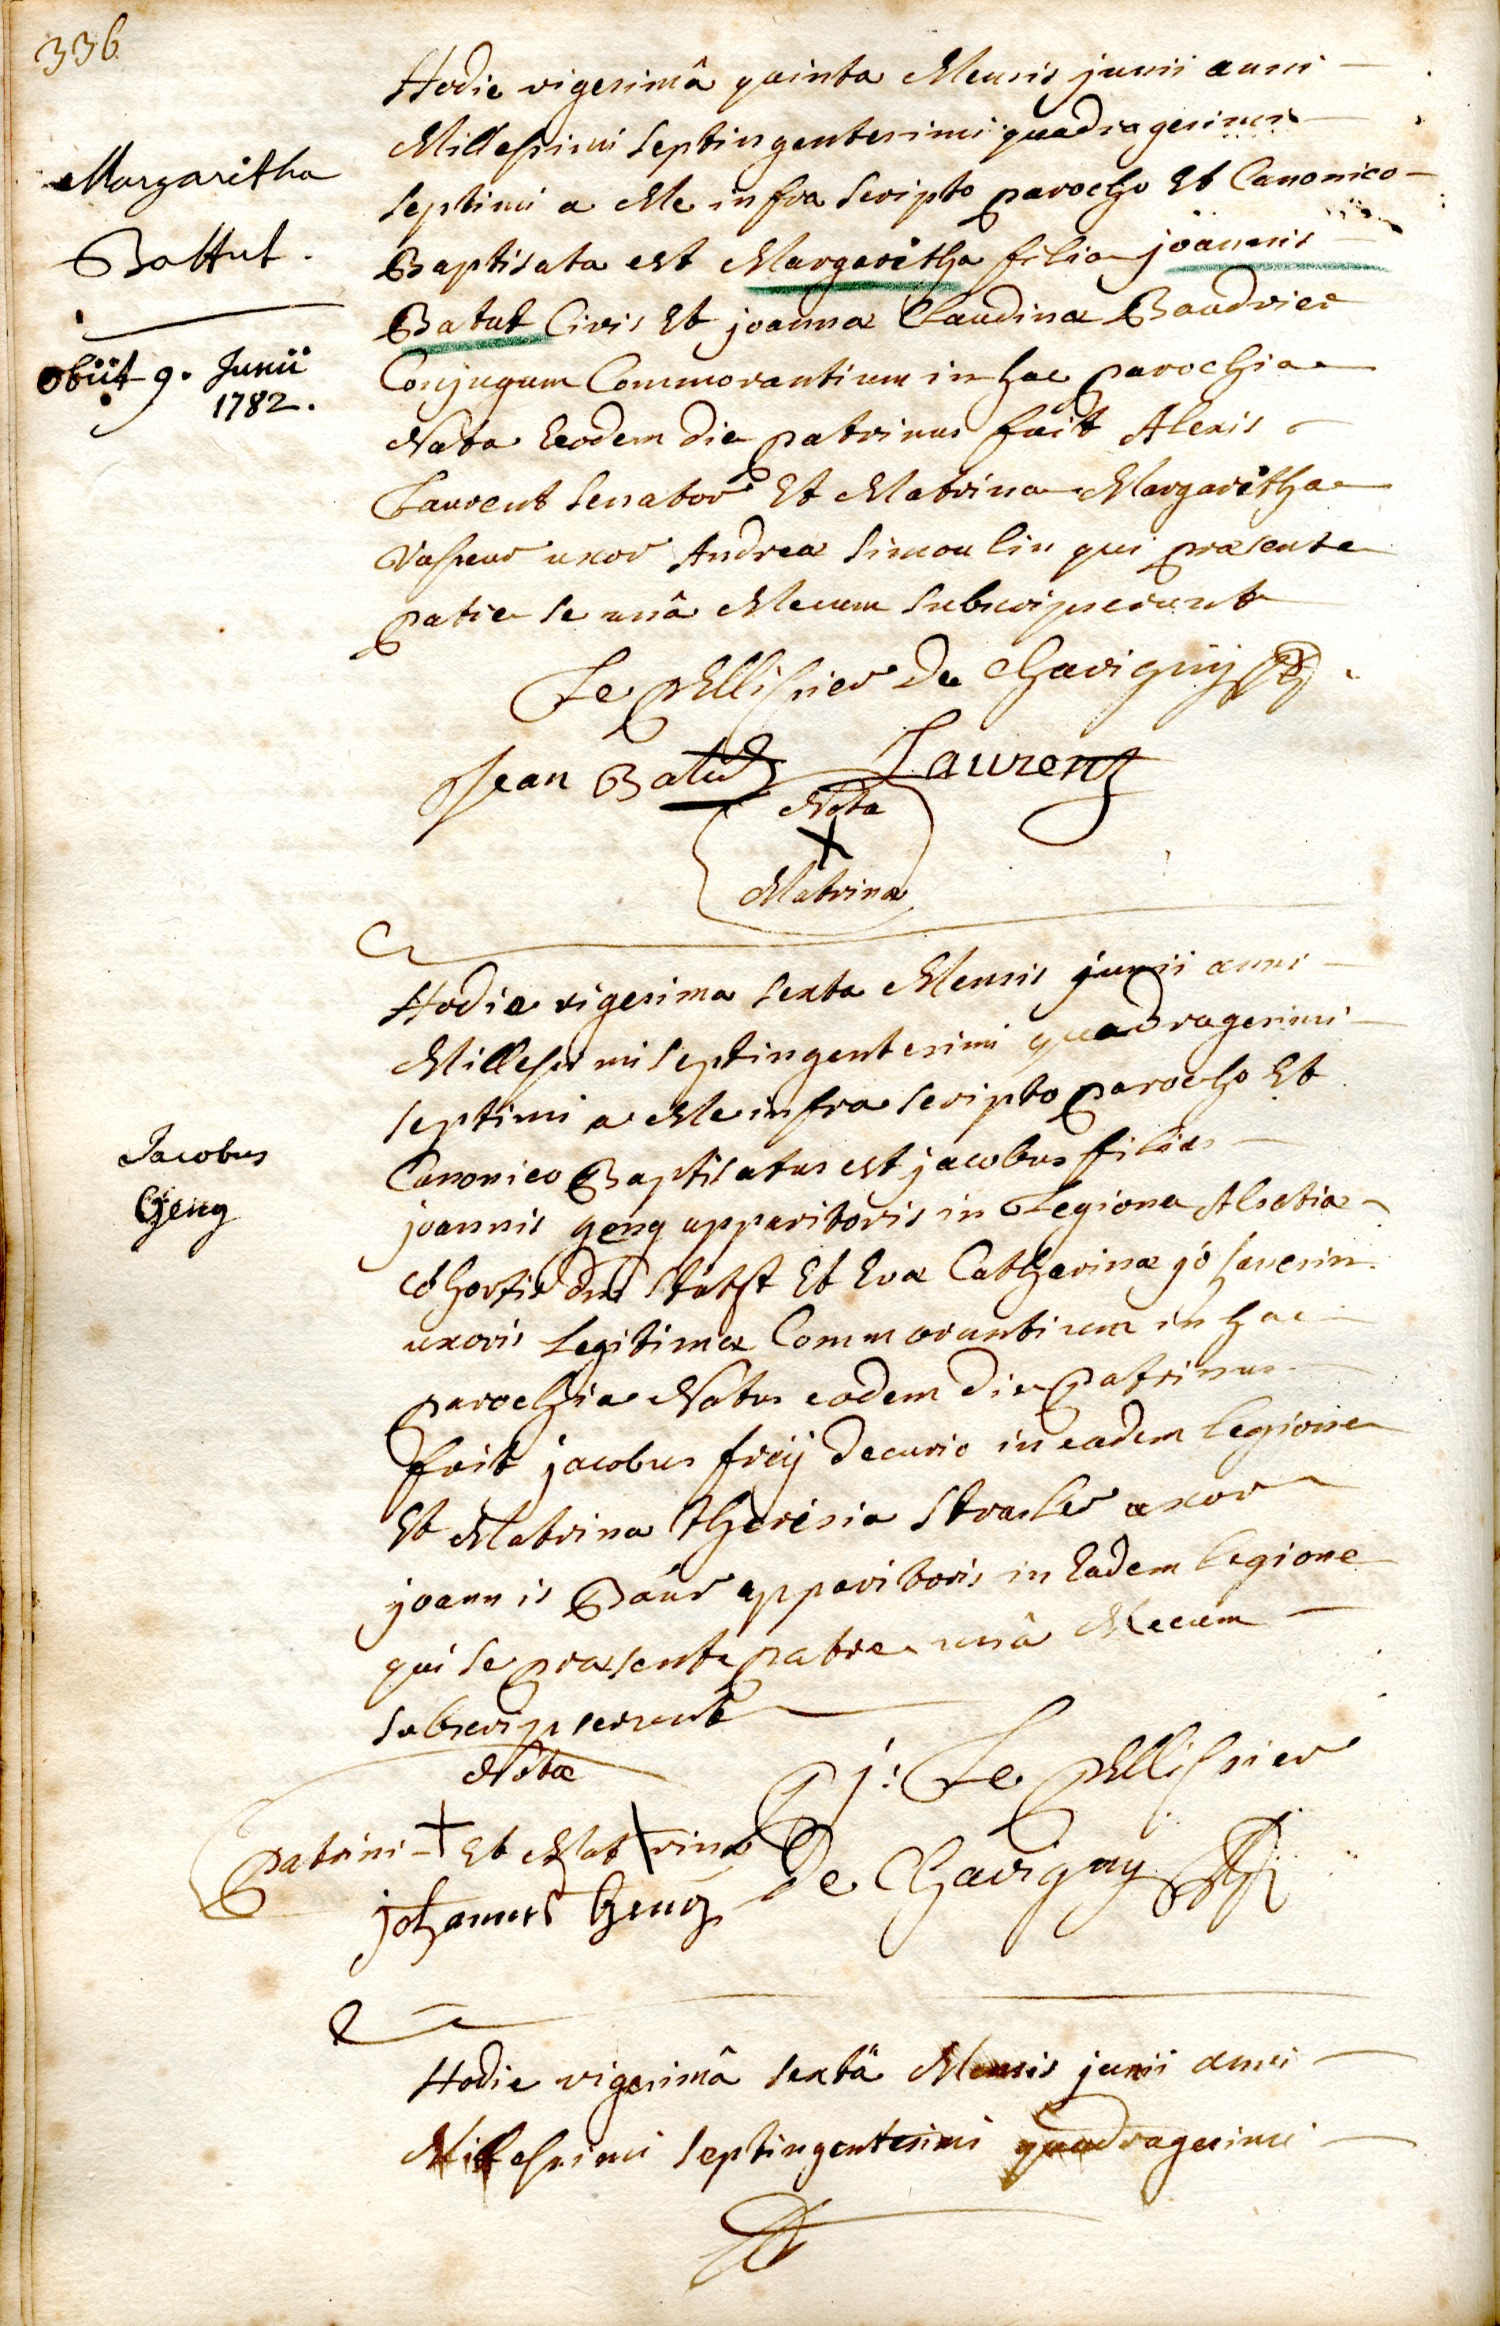 336
Margaritha
Battut.
obiit 9. Junii
1782.
Hodie vigesimâ quinta Mensis junii anni
Millesimi Septingentesimi quadragesimi
Septimi a Me infra Scripto parocho Et Canonico
Baptisata est Margaritha filia joannis
Batut Civis Et joannæ Claudinæ Baudrier
Conjugum Commorantium in hac parochia
Nata Eodem die patrinus fuit Alexis
Laurent Senator Et Matrina Margaritha
uxor Andreæ Simoulin qui præsente
patre se unâ Mecum Subscripserunt
Le pEllissier De Chavigny
Jean Batut Laurent
Nota
X
Matrinæ
Hodie vigesima Sexta Mensis junii anni
Millesimi Septingentesimi quadragesimi
Septimi a Me infra Scripto parocho Et
Canonico Baptisatus est jacobus filius
joannis geng apparitoris in Legione Alsatiæ
Cohortis dni Et Evæ Catharinæ
uxoris Legitimæ Commorantium in hac
parochia Natus eodem die patrinus
fuit jacobus freij Decurio in eadem legione
Et Matrina Theresia Straszler uxor
joannis Baur apparitoris in Eadem legione
qui se præsente patre unâ Mecum
subscripserunt
Jacobus
Geng
Nota
patrini + Et Mat X rinæ
j: Le pEllissier
De Chavigny
johannes Geng
Hodie vigesimâ Sextâ Mensis junii anni
Millesimi Septingentesimi quadragesimi